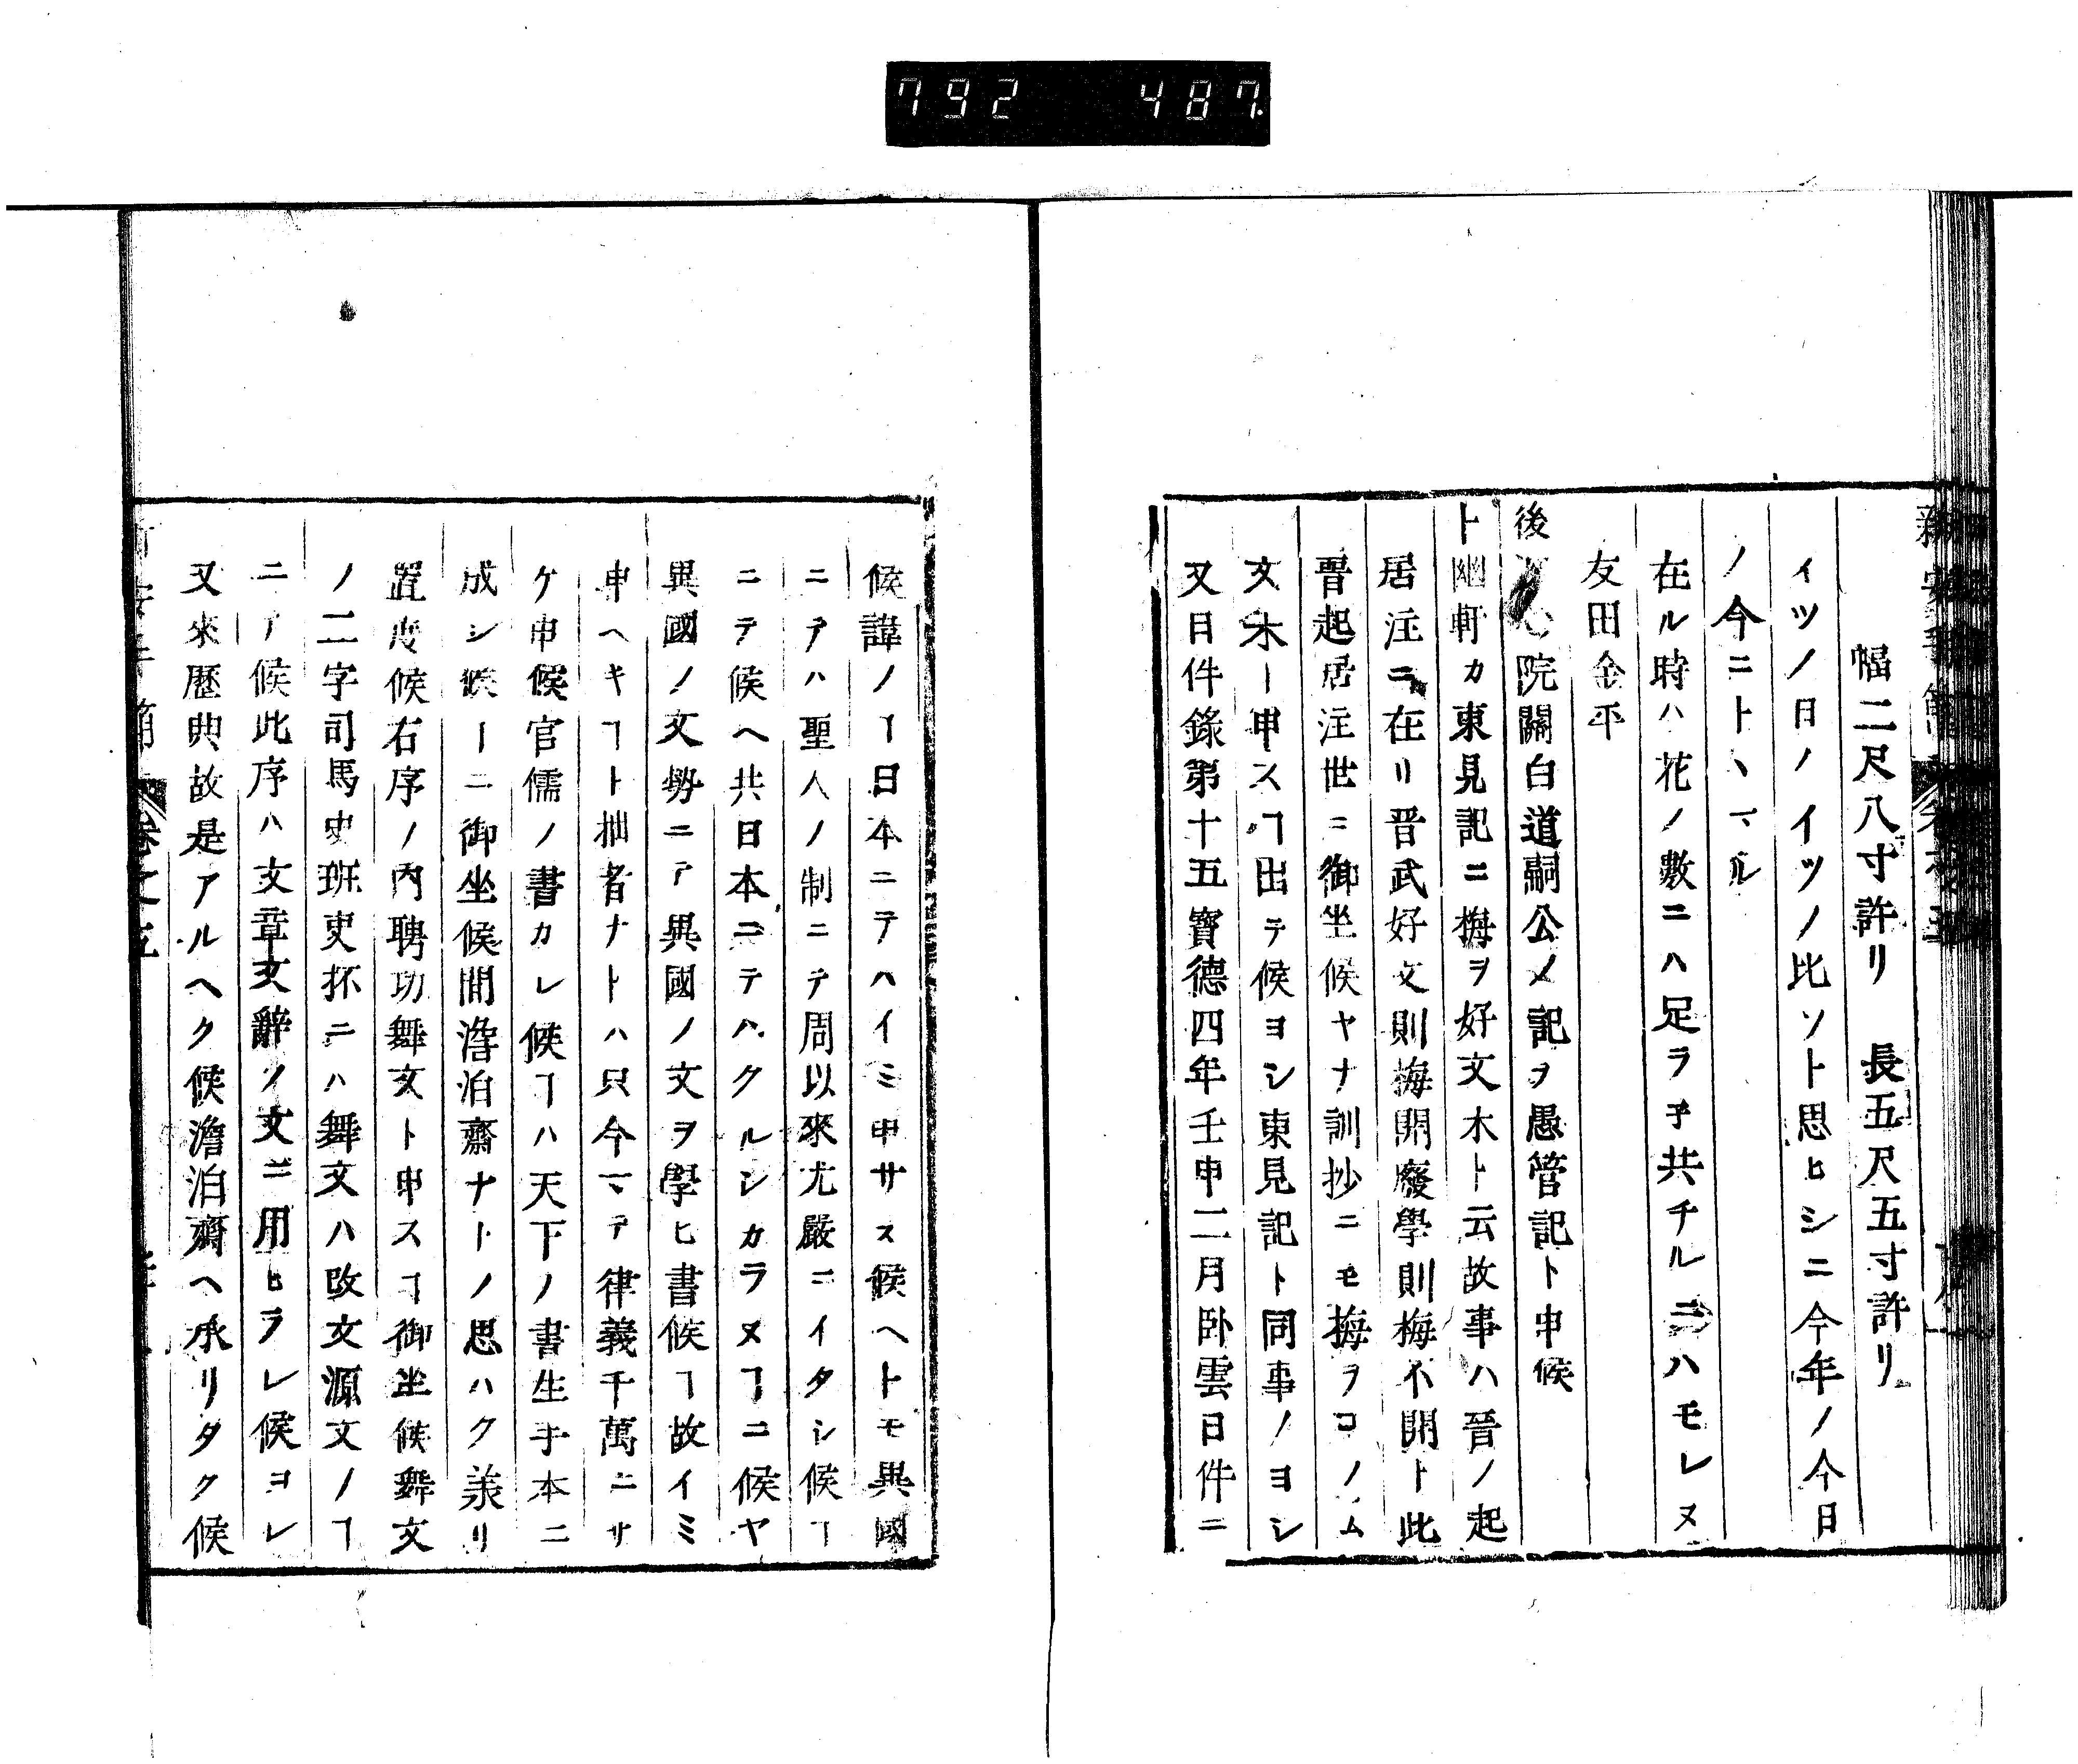 792 487
幅二尺八寸許リ 長五尺五寸許リ
イツノ日ノイツノ比ソト思ヒシニ今年ノ今日
ノ今ニトヽマル
在ル時ハ花ノ數ニハ足ラ子共チルニハモレヌ
友田金平
後 心院關白道嗣公ノ記ヲ愚管記ト申候
ト幽軒カ東見記ニ梅ヲ好文木ト云故事ハ晉ノ起
居注ニ在リ晋武好文則梅開廢學則梅不開ト此
晋起居注世ニ御坐候ヤナ訓抄ニモ梅ヲコノム
文木ー申スヿ出テ候ヨシ東見記ト同事ノヨシ
又日件錄第十五寶德四年壬申二月卧雲日件ニ
候諱ノー日本ニテハイミ申サス候ヘトモ異國
ニテハ聖人ノ制ニテ周以來尤嚴ニイタシ候ヿ
ニテ候ヘ共日本ニテハクルシカラヌヿニ候ヤ
異國ノ文勢ニテ異國ノ文ヲ學ヒ書候ヿ故イミ
申ヘキヿト拙者ナトハ只今マテ律義千萬ニサ
ケ申候官儒ノ書カレ候ヿハ天下ノ書生手本ニ
成シ候ーニ御坐候間澹泊齋ナトノ思ハク承リ
置度候右序ノ內聘功舞文ト申スヿ御坐候舞文
ノ二字司馬史班史抔ニハ舞文ハ改文源文ノヿ
ニテ候此序ハ文章文辭ノ文ニ用ヒラレ候ヨレ
又來歷典故是アルヘク候澹泊齋ヘ承リタク候